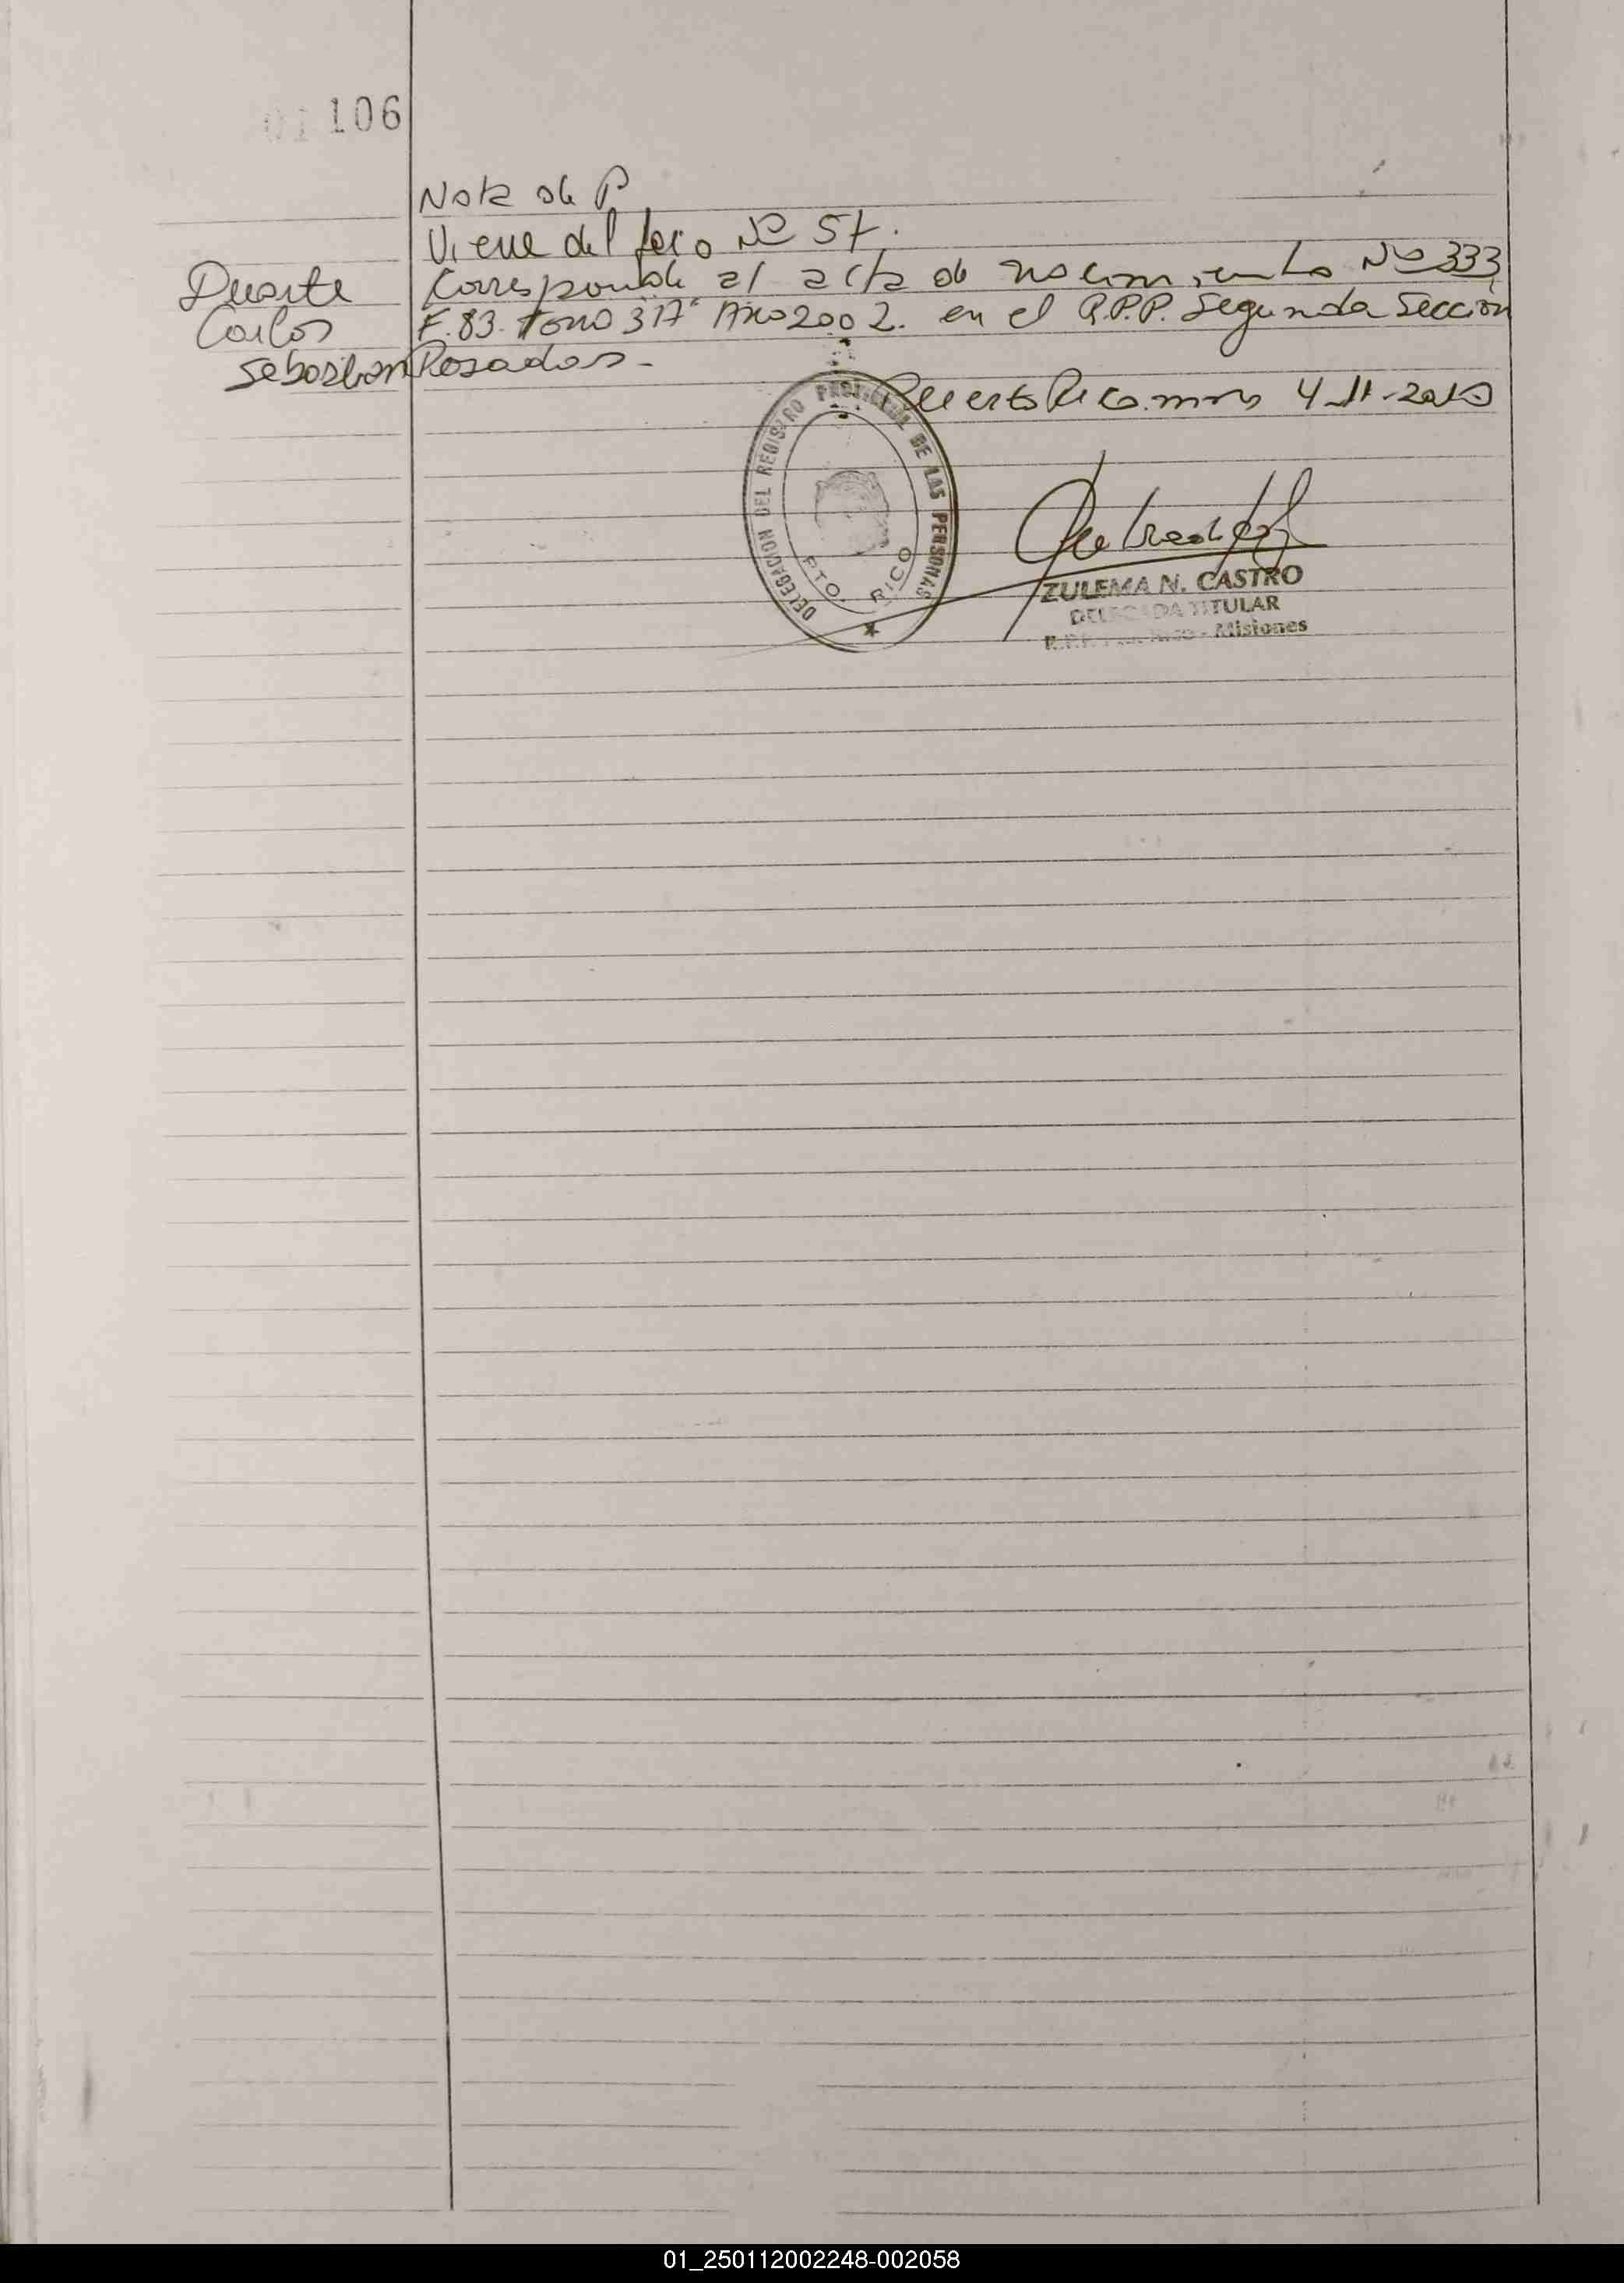 106
Nota de P.
Viene del folio Nº 57.
Duarte
Corresponde al acta de nacimiento Nº 333
Carlos
F. 83. Tomo 317º Año 2002. en el R.P.P. Segunda Sección
Sebastian
Posadas.-
Puerto Rico. mnes 4-11-2010
DELEGACION DEL REGISTRO PROVINCIAL DE LAS PERSONAS
PTO. RICO
ZULEMA N. CASTRO
DELEGADA TITULAR
Misiones
01_250112002248-002058